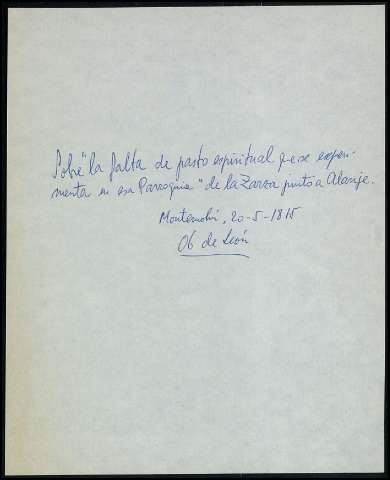 Sobre "la falta de pasto espiritual que se experi-
menta en esa Parroquia" de la Zarza junto a Alanje.
Montemolín, 20-5-1815
Ob de León